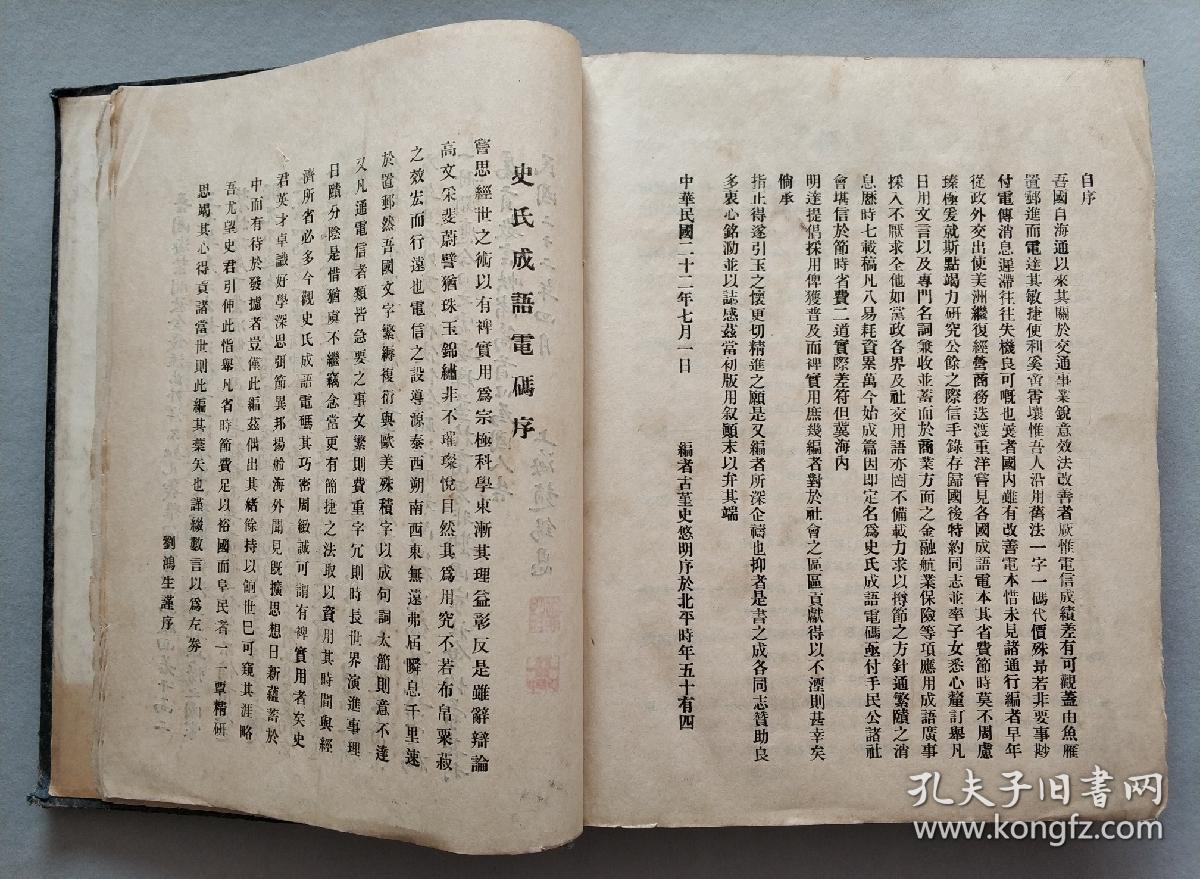 自序
吾國自海通以來其關於交通事業銳意效法改善者厥惟電信成績差有可觀蓋由魚雁
置郵進而電達其敏捷便利奚啻霄壤惟吾人沿用舊法一字一碼代價殊昻若非要事尠
付電傳消息遲滯往往失機良可嘅也曩者國內雖有改善電本惜未見諸通行編者早年
從政外交出使美洲繼復經營商務迭渡重洋嘗見各國成語電本其省費節時莫不周慮
臻極爰就斯點竭力研究公餘之際信手錄存歸國後特約同志並率子女悉心釐訂舉凡
日用文言以及專門名詞兼收並蓄而於商業方面之金融航業保險等項應用成語廣事
採入不厭求全他如黨政各界及社交用語亦罔不備載力求以撙節之方針通繁賾之消
息歷時七載稿凡八易耗資累萬今始成篇因即定名爲史氏成語電碼亟付手民公諸社
會堪信於節時省費二道實際差符但冀海內
明達提倡採用俾獲普及而裨實用庶幾編者對於社會之區區貢獻得以不湮則甚幸矣
倘承
指止得遂引玉之懷更切精進之願是又編者所深企禱也抑者是書之成各同志贊助良
多衷心銘泐並以誌感茲當初版用叙顚末以弁其端
中華民國二十二年七月一日　編者古堇史悠明序於北平時年五十有四
史氏成語電碼序
嘗思經世之術以有裨實用爲宗極科學東漸其理益彰反是雖辭辯論
高文采斐蔚譬猶珠玉錦繡非不璀璨悅目然其爲用究不若布帛粟菽
之效宏而行遠也電信之設導源泰西朔南西東無遠弗屆瞬息千里速
於置郵然吾國文字繁縟複衍與歐美殊積字以成句詞太簡則意不達
又凡通電信者類皆急要之事文繁則費重字冗則時長世界演進事理
日賾分陰是惜猶虞不繼竊念當更有簡捷之法取以資用其時間與經
濟所省必多今觀史氏成語電碼其巧密周敏誠可謂有裨實用者矣史
君英才卓識好學深思弭節異邦揚舲海外聞見旣擴思想日新蘊蓄於
中而有待於發攄者豈僅此編茲偶出其緒餘持以餉世巳可窺其涯略
吾尤望史君引伸此恉舉凡省時節費足以裕國而阜民者一一覃精研
思竭其心得貢諸當世則此編其葉矢也謹綴數言以爲左劵
劉鴻生謹序
孔夫子旧书网
www.kongfz.com